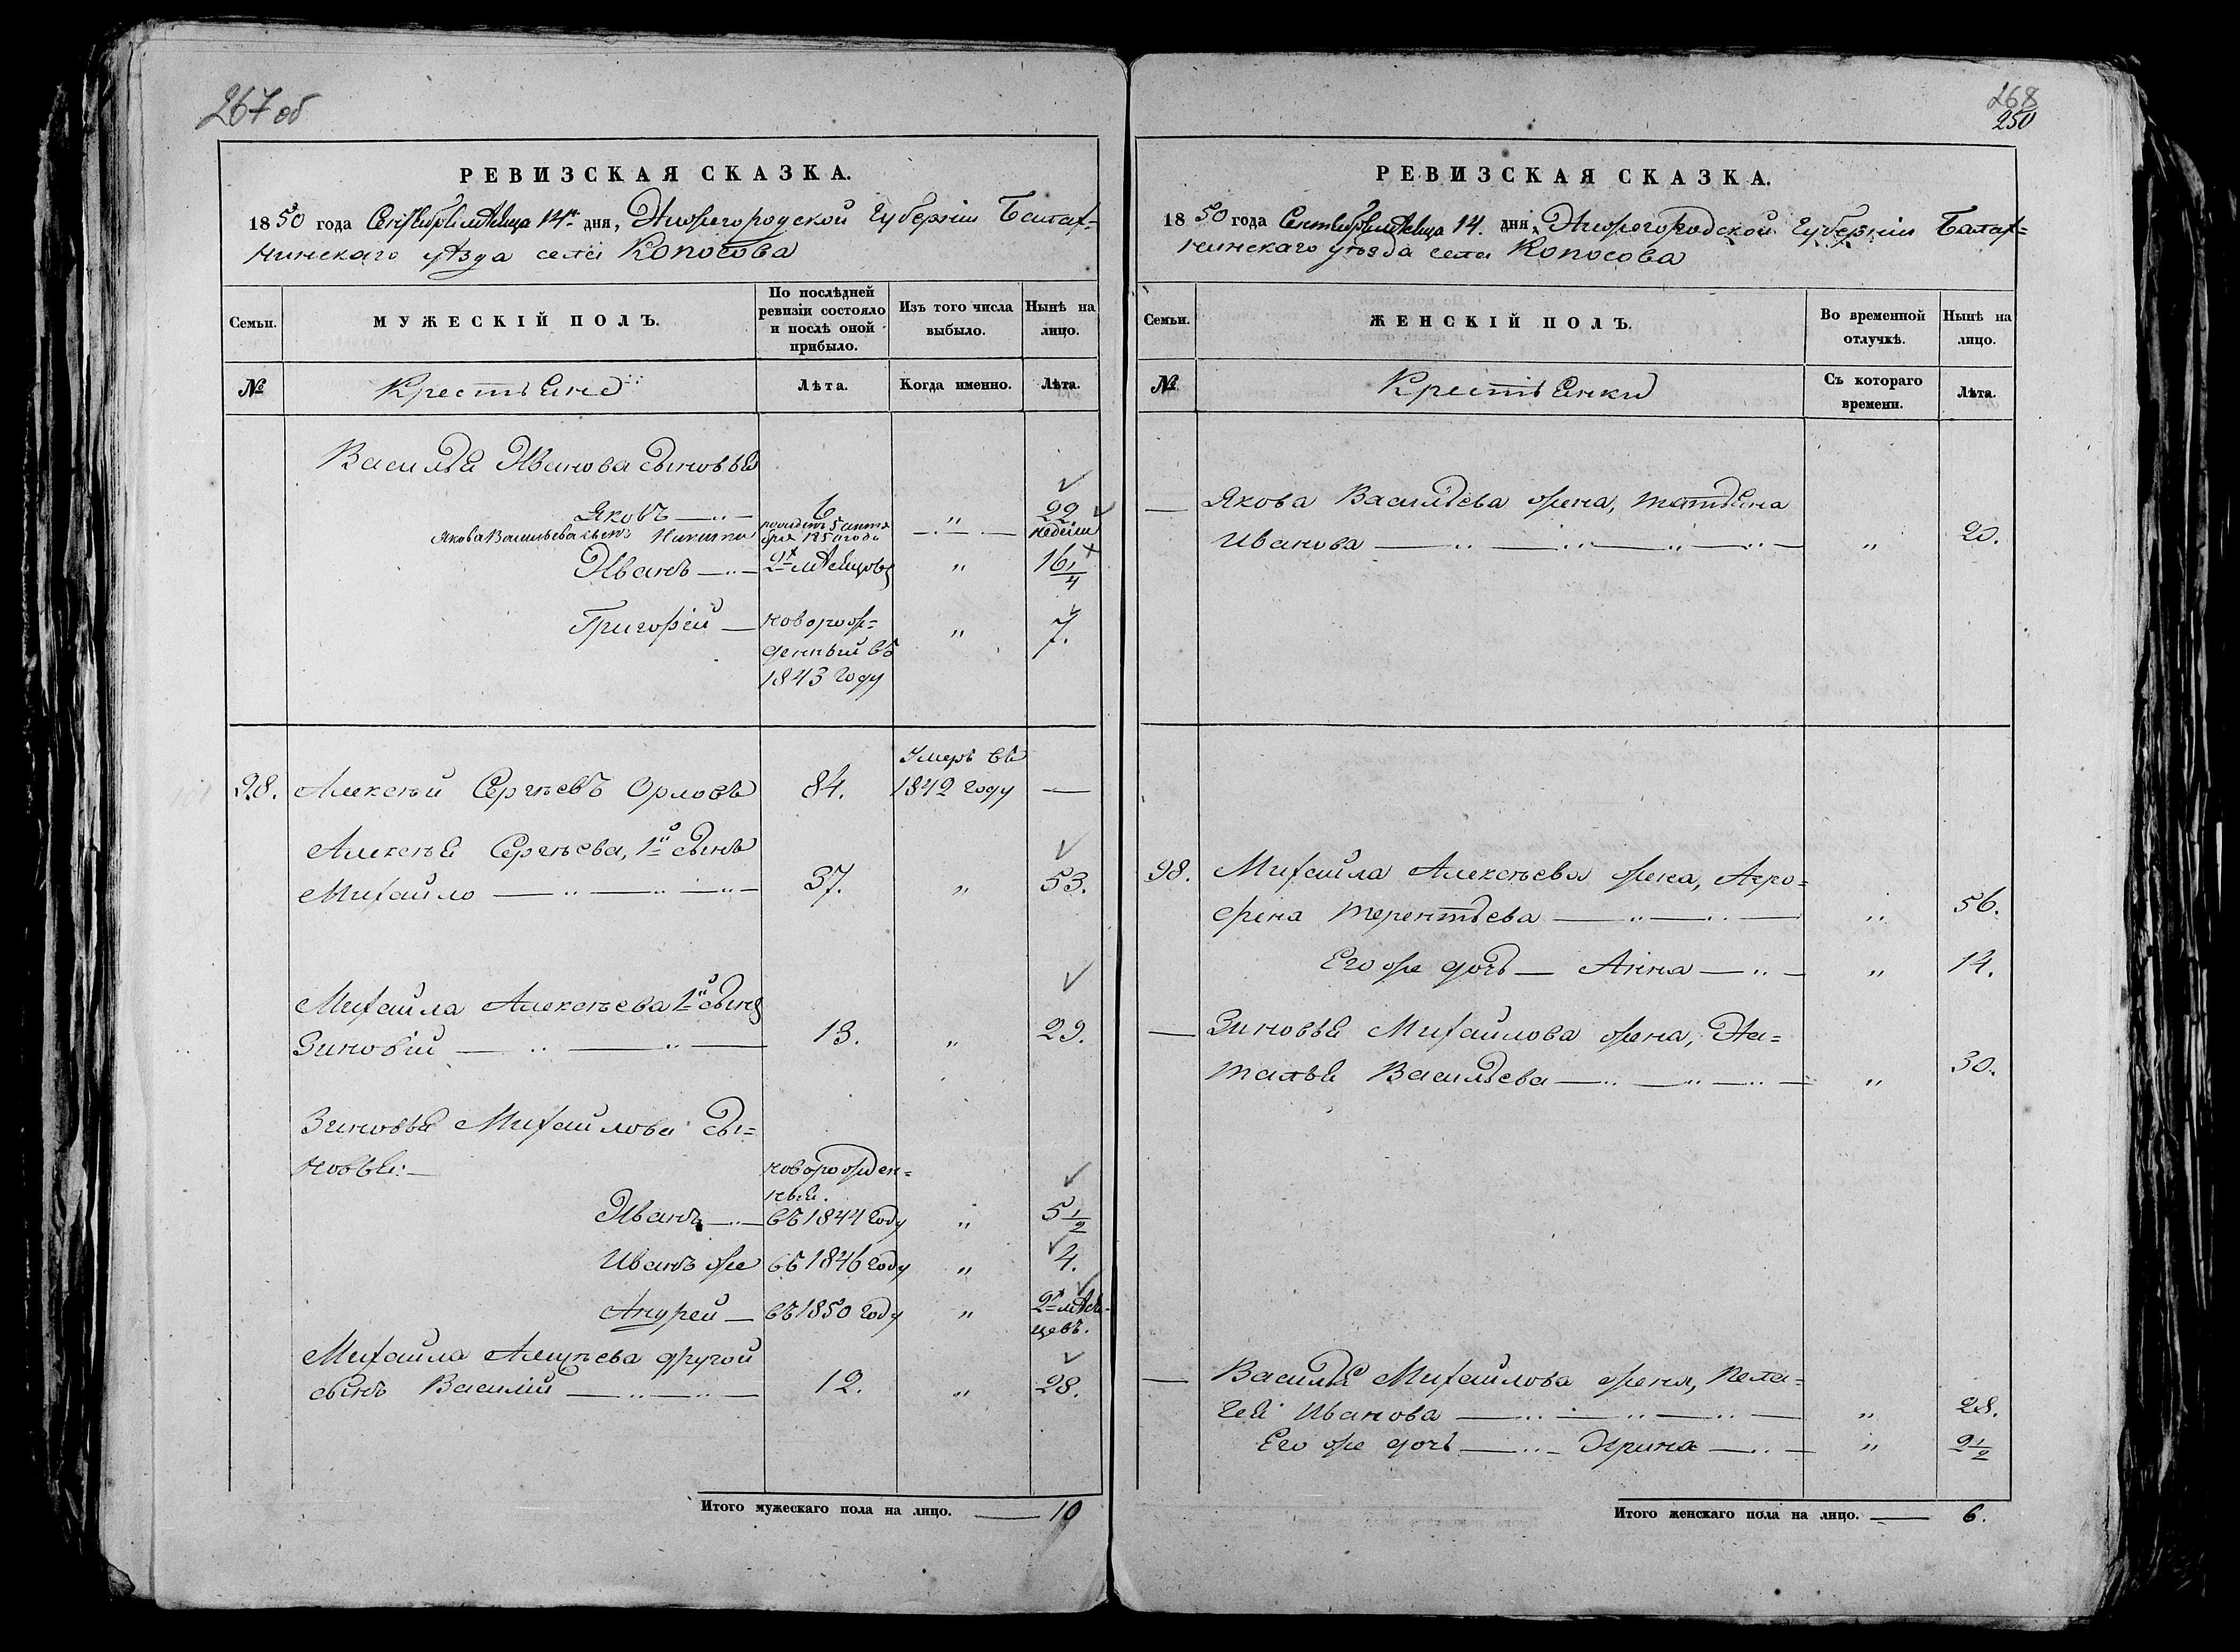 267 об
РЕВИЗСКАЯ СКАЗКА.
1850 года Сентября мѣсяца 14го дня, Нижегородской Губерніи Балах=
нинскаго уѣзда села Копосова
Семьи.
МУЖЕСКІЙ ПОЛЪ.
По послѣдней
ревизіи состояло
и послѣ оной
прибыло.
Изъ того числа
выбыло.
Нынѣ на
лицо.
№
Крестьяне
Лѣта.
Когда именно.
Лѣта.
Василья Иванова сыновья
Яковъ — 6 „ 22
Якова Васильева сынъ Никита
1850 года
недели
Иванъ — 2хъ мѣсяцовъ „ 16 1/4
Григорій — новорож= „ 7.
денный въ
1843 году
Умеръ въ
98. Алексѣй Сергѣевъ Орловъ 84. 1842 году —
Алексѣя Сергѣева, 1й сынъ
Михайло — 37. „ 53.
Михайла Алексѣева 1й сынъ
Зиновій — 13. „ 29.
Зиновья Михайлова сы=
новья: — новорожден=
ные.
Иванъ — въ 1844 году „ 5 1/2
Иванъ же въ 1846 году „ 4.
Андрей — въ 1850 году „ 2хъ мѣся-
цевъ.
Михайла Алексѣева другой
сынъ Василій — 12. „ 28.
Итого мужескаго пола на лицо. — 10
268
250
РЕВИЗСКАЯ СКАЗКА.
1850 года Сентября мѣсяца 14. дня, Нижегородской Губерніи Балах=
нинскаго уѣзда села Копосова
Семьи.
ЖЕНСКІЙ ПОЛЪ.
Во временной
отлучкѣ.
Нынѣ на
лицо.
№
Крестьянки
Съ котораго
времени.
Лѣта.
— Якова Васильева жена, Татьяна
Иванова — „ 20.
98. Михайла Алексѣева жена, Агро=
фина Терентьева — „ 56.
Его же дочь — Анна — „ 14.
— Зиновья Михайлова жена, На=
талья Васильева — „ 30.
— Василья Михайлова жена, Пела=
гея Иванова — „ 28.
Его же дочь — Ирина — „ 2 1/2
Итого женскаго пола на лицо. — 6.